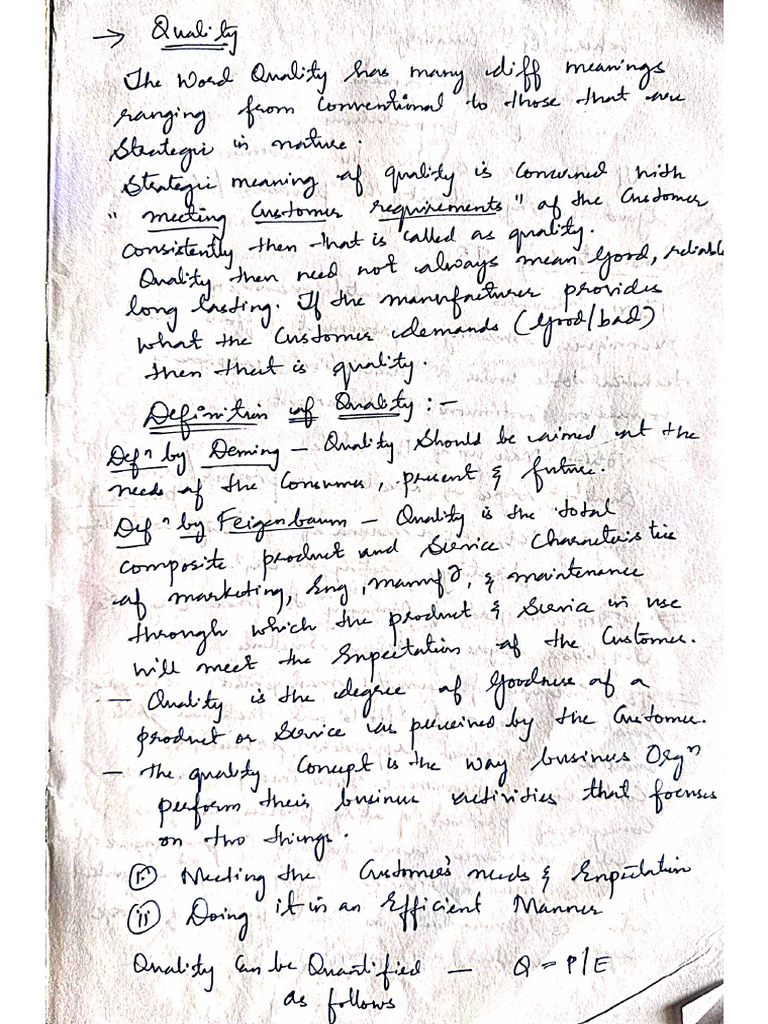 → Quality
The Word Quality has many diff meanings
ranging from Conventional to those that are
Strategic in nature.
Strategic meaning of quality is Concerned with
" meeting Customer requirements " of the Customer
Consistently then that is called as quality.
Quality then need not always mean Good, reliable
long lasting. If the manufacturer provides
what the Customer demands (Good/bad)
then that is quality.
Definition of Quality :-
Defⁿ by Deming – Quality should be aimed at the
needs of the Consumer, present & future.
Defⁿ by Feigenbaum – Quality is the total
composite product and Service Characteristics
of marketing, Eng, manufg, & maintenance
through which the product & Service in use
will meet the Expectation of the Customer.
– Quality is the degree of Goodness of a
product or Service as perceived by the Customer.
– The quality Concept is the way business Orgⁿ
perform their business activities that focuses
on two things.
(i) Meeting the Customer's needs & Expectation
(ii) Doing it in an Efficient Manner
Quality Can be Quantified – Q = P/E
as follows